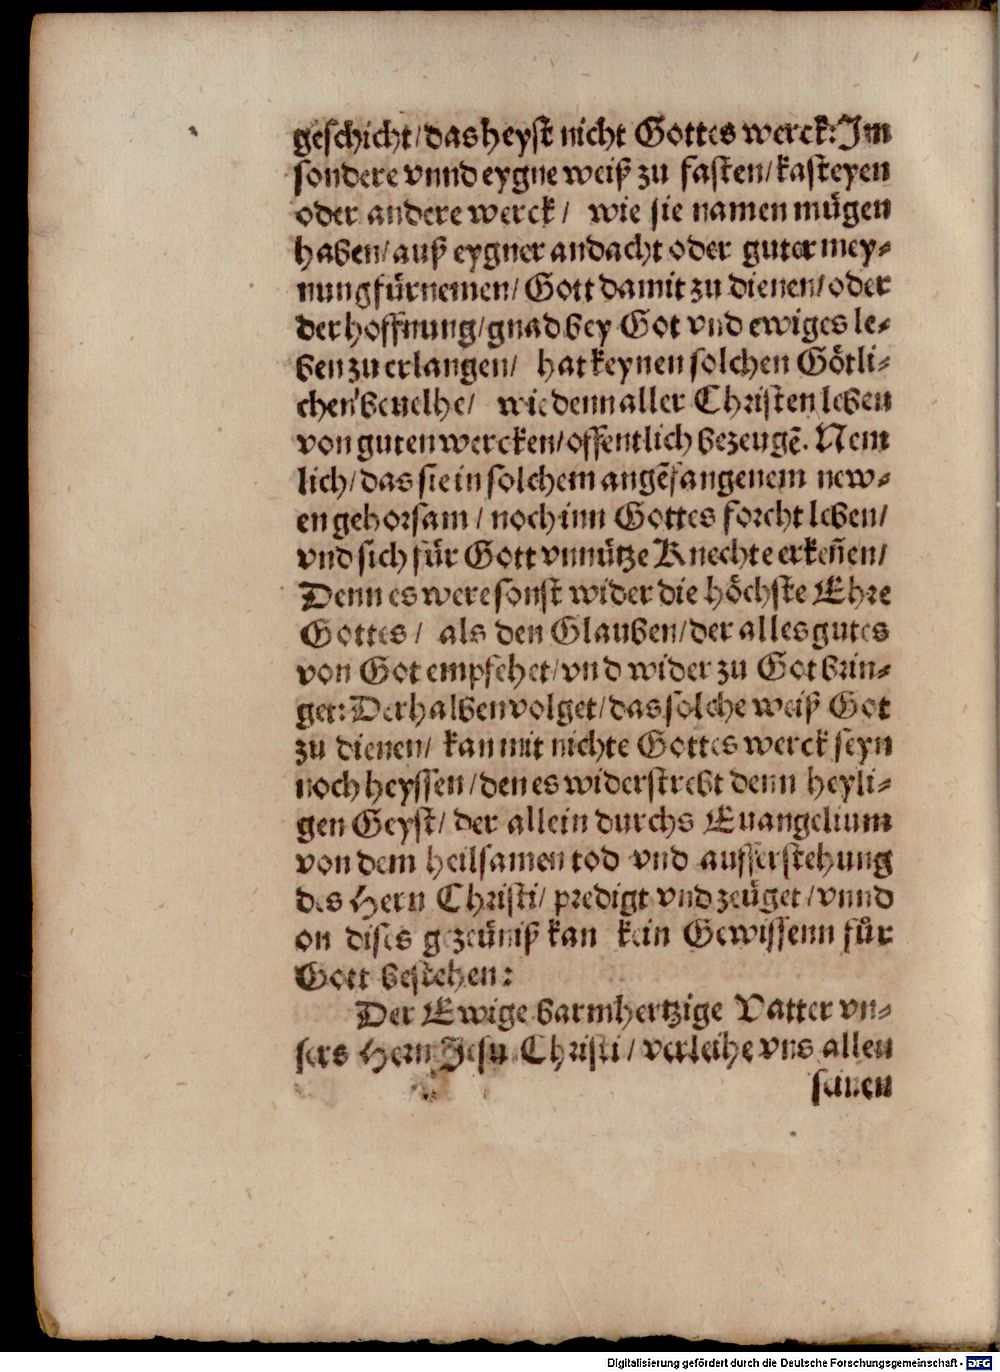 geschicht/das heyst nicht Gottes werck: Im
sondere vnnd eygne weiß zu fasten/kasteyen
oder andere werck/ wie sie namen mügen
haben/auß eygner andacht oder guter mey-
nung fürnemen/ Gott damit zu dienen/oder
der hoffnung/gnad bey Got vnd ewiges le-
ben zu erlangen/ hat keynen solchen Götli-
chen beuelhe/ wie denn aller Christen leben
von guten wercken/offentlich bezeugẽ. Nem
lich/das sie in solchem angẽfangenem new-
en gehorsam/ noch inn Gottes forcht leben/
vnd sich für Gott vnnütze Knechte erkeñen/
Denn es were sonst wider die höchste Ehre
Gottes/ als den Glauben/der alles gutes
von Got empfehet/vnd wider zu Got brin-
get: Derhalben volget/das solche weiß Got
zu dienen/ kan mit nichte Gottes werck seyn
noch heyssen/den es widerstrebt denn heyli-
gen Geyst/ der allein durchs Euangelium
von dem heilsamen tod vnd aufferstehung
des Hern Christi/ predigt vnd zeüget/vnnd
on dises gezeüniß kan kein Gewissenn für
Gott bestehen:
Der Ewige barmhertzige Vatter vn-
sers Hern Jesu Christi/ verleihe vns allen
seinen
Digitalisierung gefördert durch die Deutsche Forschungsgemeinschaft - DFG